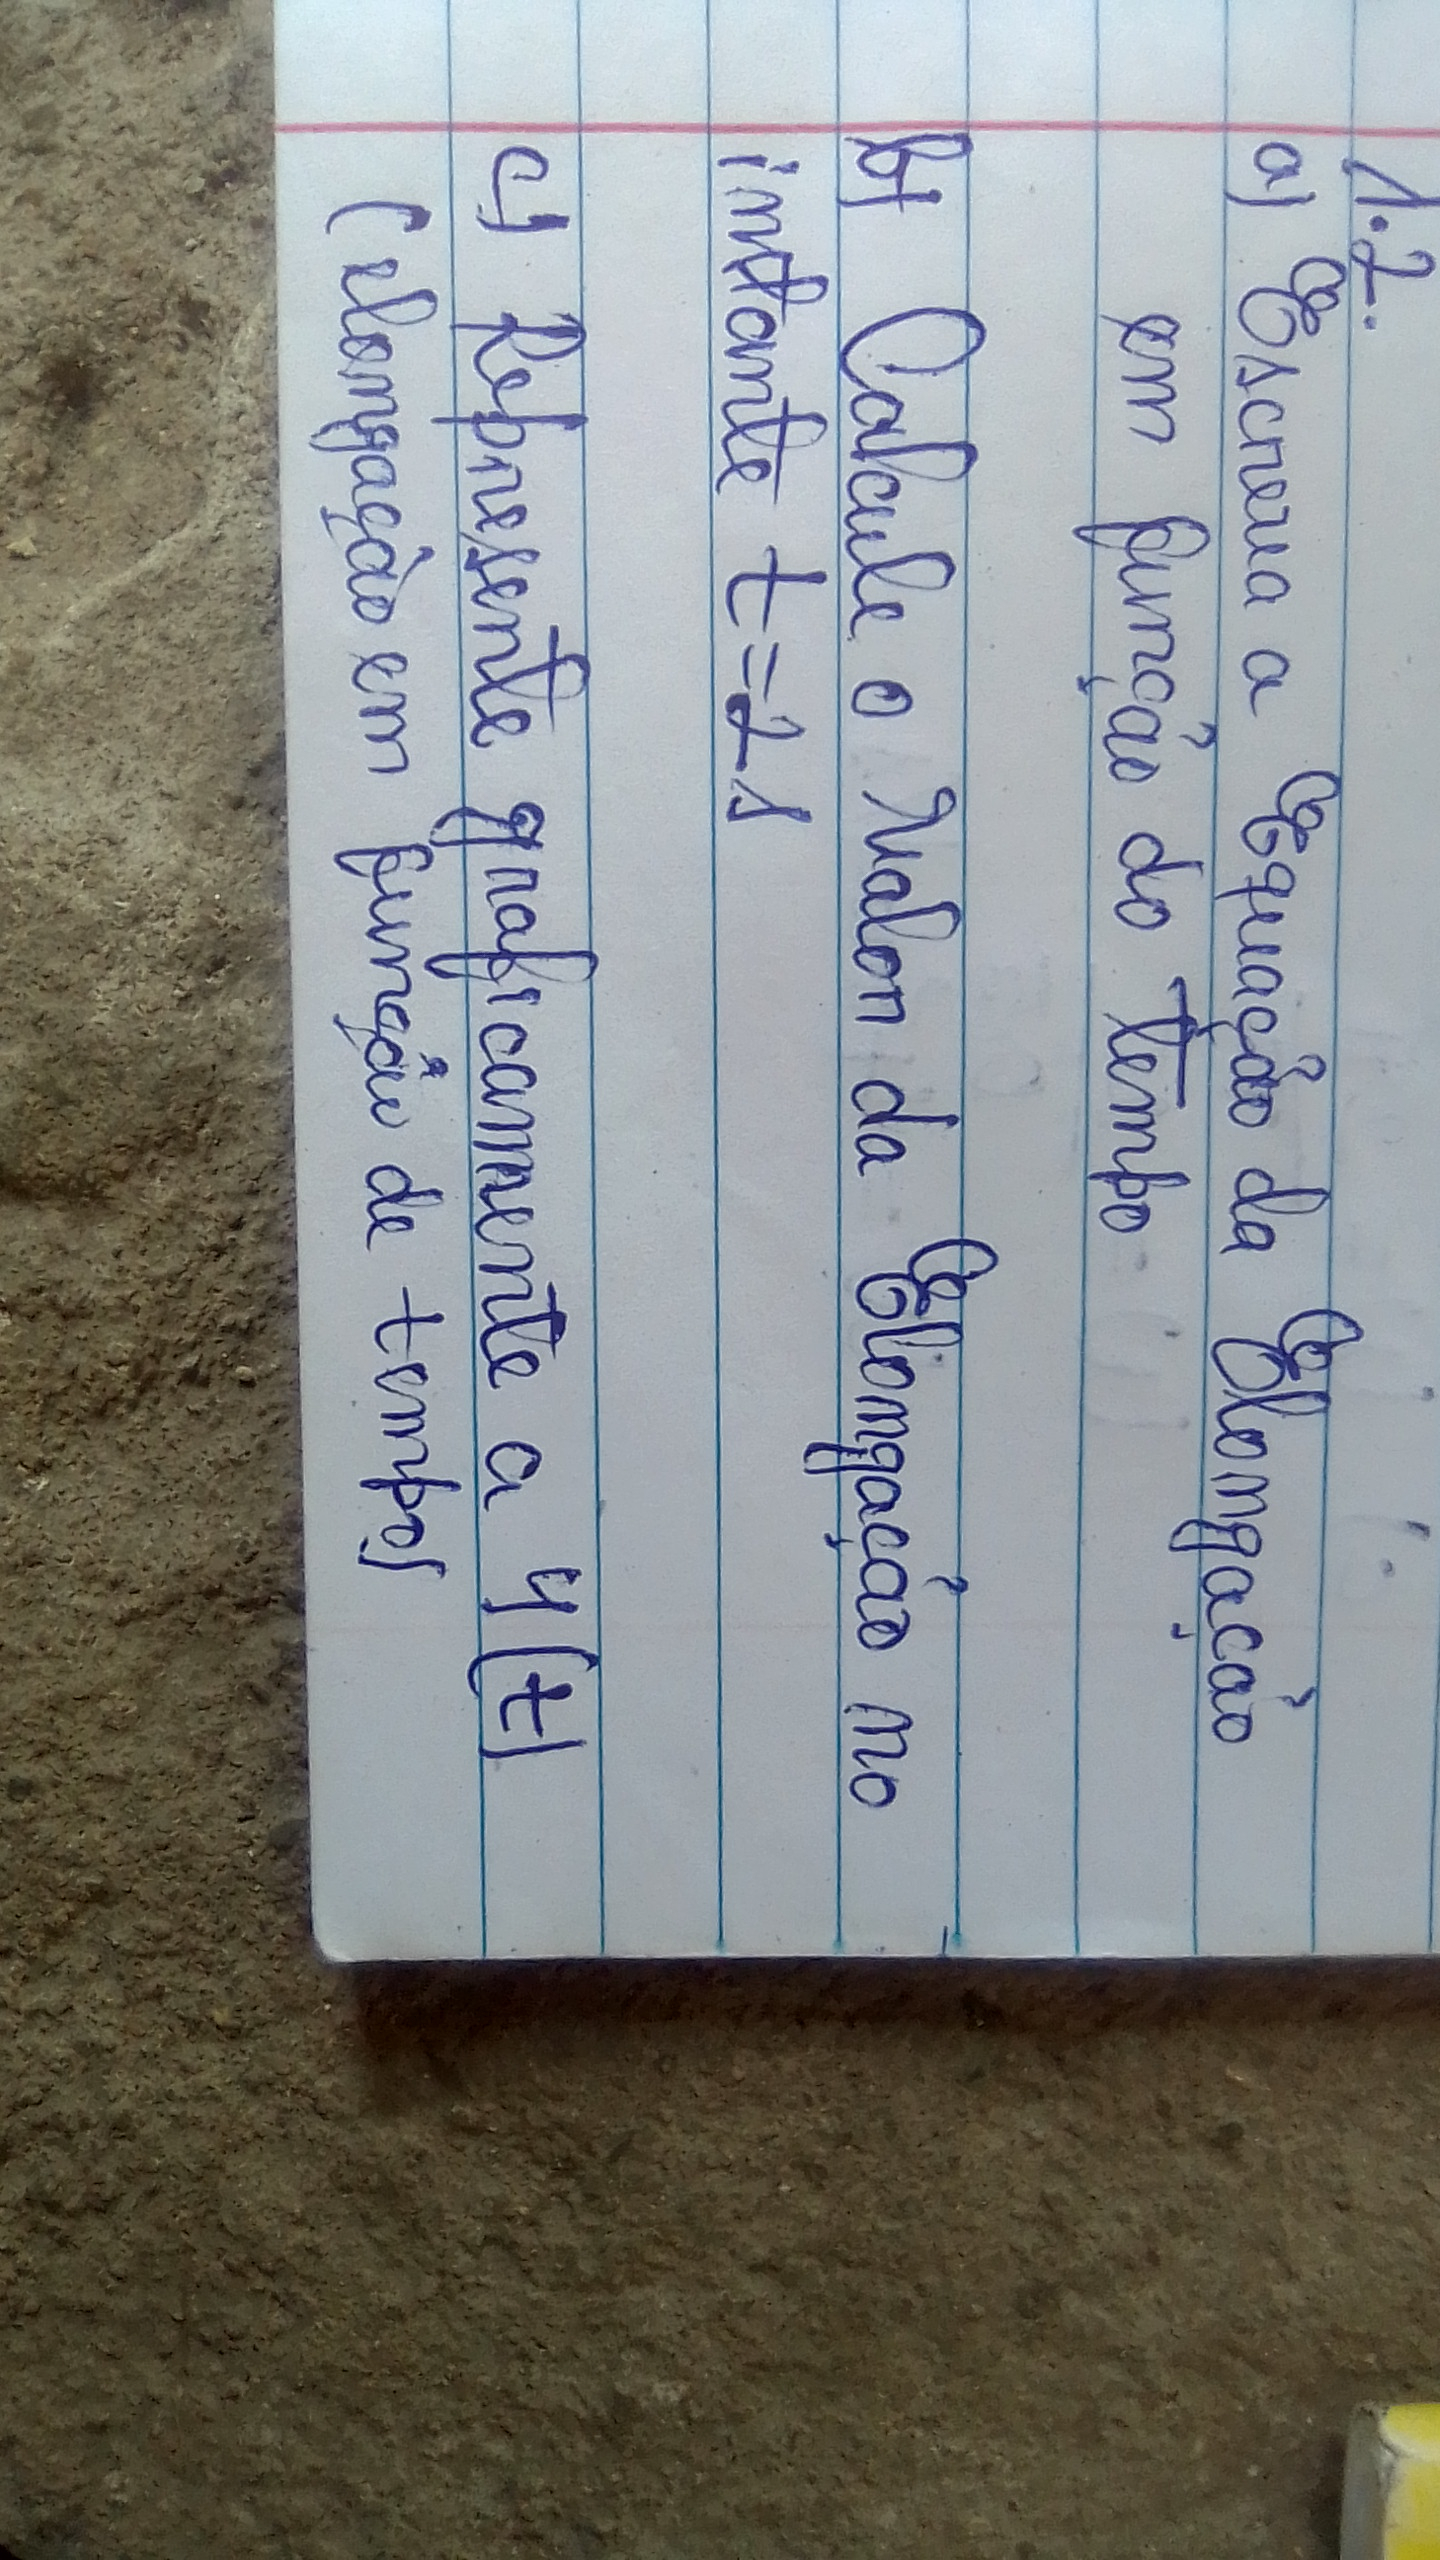 1.2.
a) Escreva a Equação da Elongação
em função do tempo
b) Calcule o Valor da Elongação no
instante t=2s
c) Represente graficamente a y(t)
(elongação em função de tempo)